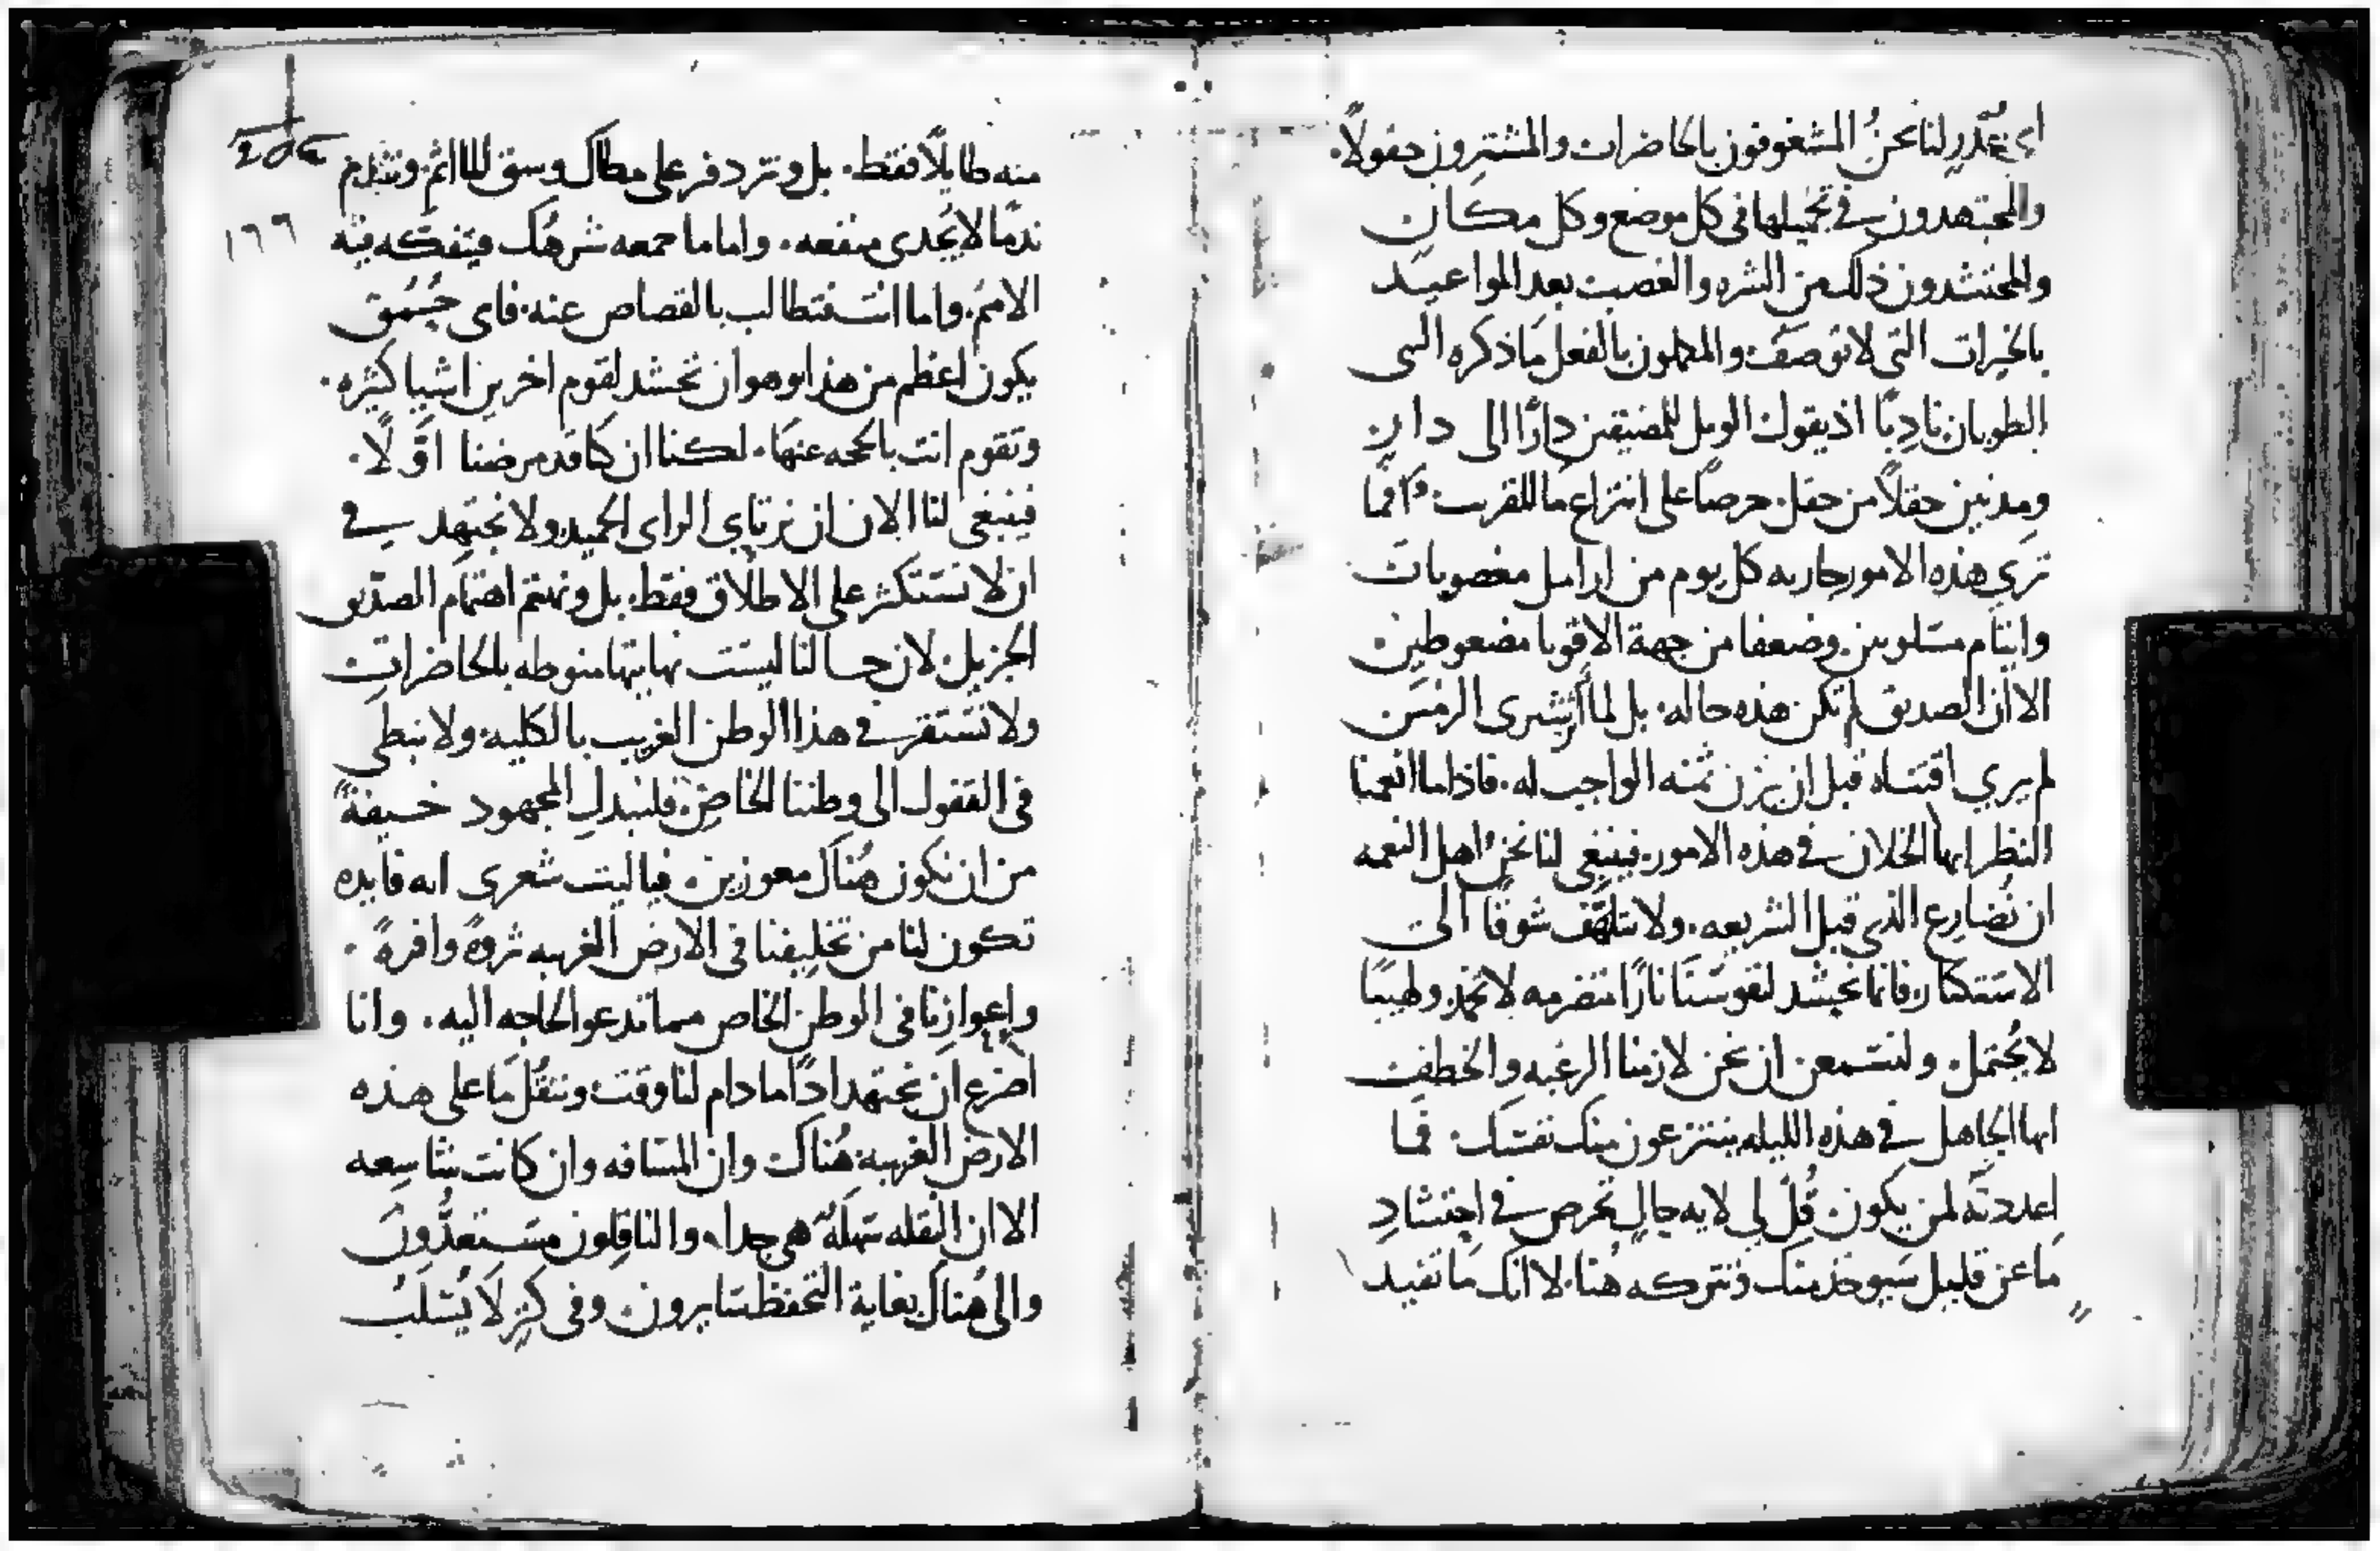 اي عُذرٍ لنا نحنُ المشغوفون بالحاضرات والمشترون حقولًا.
والمجتهدون في تجميلها في كل موضع وكل مكان
والمحتشدون ذلك من الشره والغصب بعد المواعيد
بالخيرات التي لا توصف والمهملون بالفعل ما ذكره النبي
الطوبان نادبًا اذ يقول الويل للمضيفين دارًا الى دار
ومدنين حقلًا من حقل حرصًا على انتزاع ما للقريب افما
ترى هذه الامور جاريه كل يوم من ارامل مغصوبات
وايتام مسلوبين وضعفا من جهة الاقويا مضغوطين
الا ان الصديق لم تكن هذه حاله. بل لما اشترى الرمس
لم يري اقتناه قبل ان يزن ثمنه الواجب له. فاذا ما انعمنا
النظر ايها الخلان في هذه الامور فينبغي لنا نحن اهل النعمه
ان نُضارع الذي قبل الشريعه. ولا نتلهف شوقًا الى
الاستكثار فاننا نحشد لنفوسنا نارًا متضرمه لا تخمد ولهيبًا
لا يُحتمل. ولنسمعن ان نحن لازمنا الرغبه والخطف
ايها الجاهل في هذه الليله ينتزعون منك نفسك. فما
اعددته لمن يكون. قُل لي لايه حالٍ تحرص في احتشادِ
ما عن قليل سيوخذ منك وتتركه هنا. لا انك ما تفيد
١٦٦
منه طايلًا فقط. بل وتزدفر على مطاك وسق المااثم وتندم
ندمًا لا يُجدى منفعه. واما ما جمعه شرهك فيتفكه فيه
الامم. واما انت فتطالب بالقصاص عنه. فاى حُمُق
يكون اعظم من هذا وهو ان تحشد لقوم اخرين اشيا كثيره.
وتقوم انت بالحجه عنها. لكننا ان كنا قد مرضنا اوّلًا.
فينبغي لنا الان ان نرتاي الراي الحميد ولا نجتهد في
ان لا نستكثر على الاطلاق فقط. بل ونهتم اهتمام الصديق
الجزيل. لان حالنا ليست نهايتها منوطه بالحاضرات
ولا نستقر في هذا الوطن الغريب بالكليه. ولا نبطي
في القفول الى وطننا الخاص. فلنبدل المجهود خيفةً
من ان نكون هُناك معوزين. فيا ليت شعرى ايه فايده
تكون لنا من تخليفنا في الارض الغريبه ثروةً وافرةً.
واعوازنا في الوطن الخاص مما تدعو الحاجه اليه. وانا
اضرع ان نجتهد اذًا ما دام لنا وقت وننقُل ما على هذه
الارض الغريبه هُناك وان المسافه وان كانت شاسعه
الا ان النقله سهلهٌ هي جدا. والناقلون مستعدُّون
والى هُناك بغاية التحفظ سايرون. وفي كنزٍ لا يُسلب